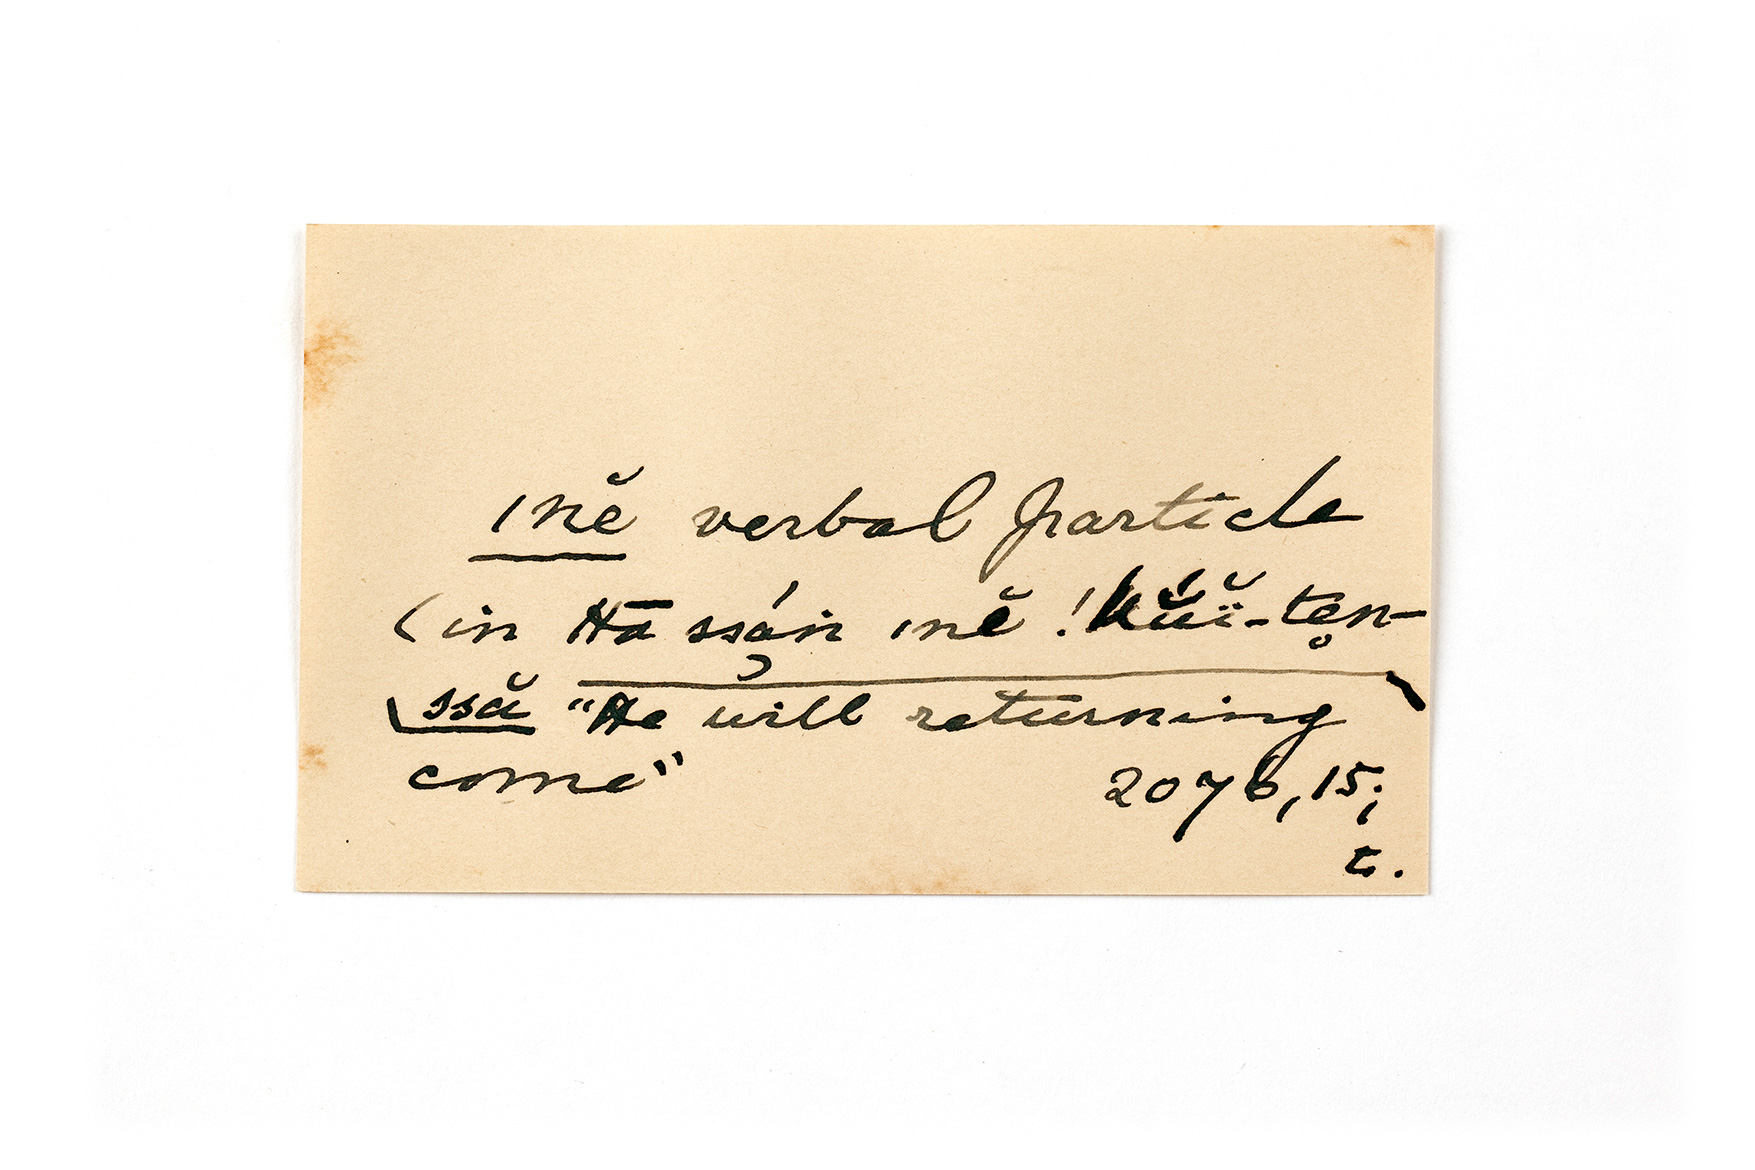 ınĕ verbal particle
(in Hā ssạ́n ınĕ !kŭï̆-tẹn-
ssă "He will returning
come" 2076, 15;
t.